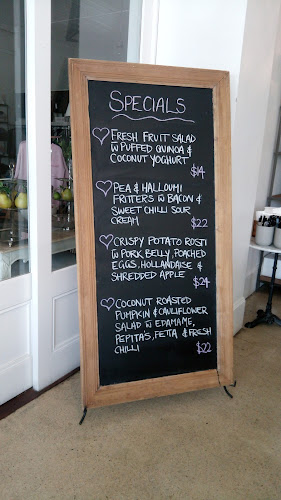 SPECIALS
FRESH FRUIT SALAD
W PUFFED QUINOA &
COCONUT YOGHURT
$14
PEA & HALLOUMI
FRITTERS W BACON &
SWEET CHILLI SOUR
CREAM
$22
CRISPY POTATO ROSTI
W PORK BELLY, POACHED
EGGS, HOLLANDAISE &
SHREDDED APPLE
$24
COCONUT ROASTED
PUMPKIN & CAULIFLOWER
SALAD W EDAMAME,
PEPITA'S, FETTA & FRESH
CHILLI
$22